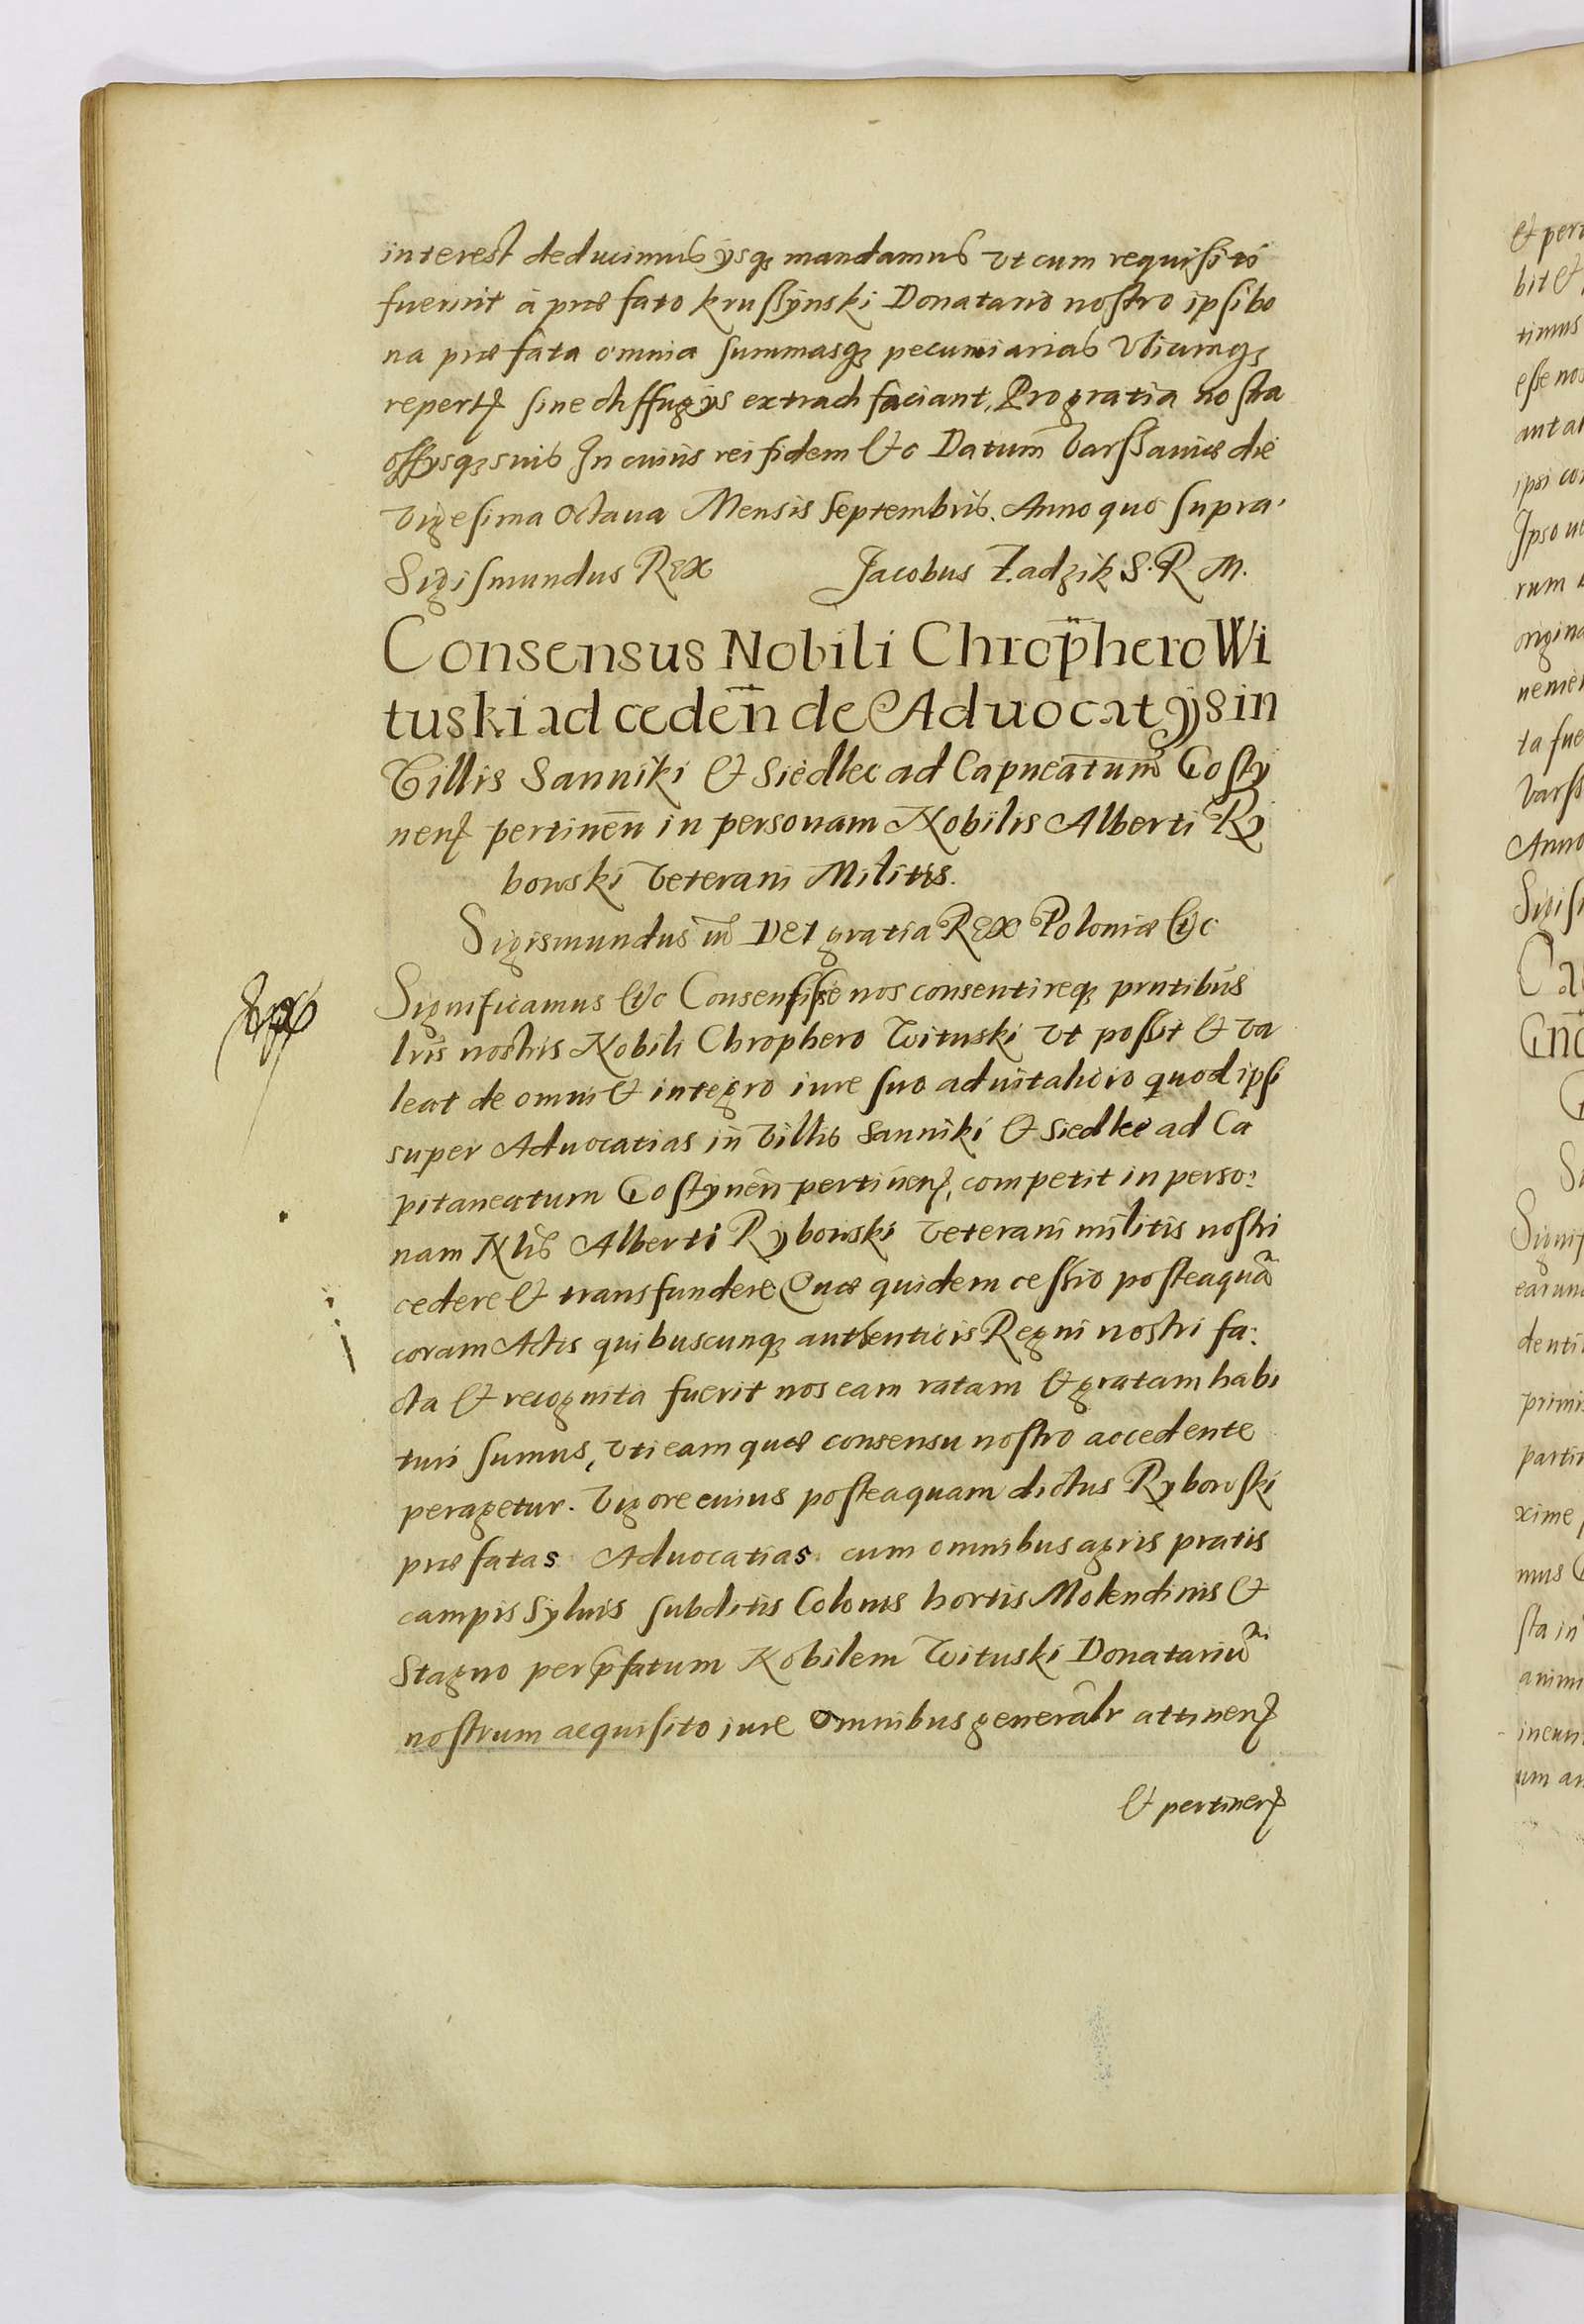 interest deducimus ysq₃ mandamus vt cum requisiti
fuerint à præfato Krussÿnski Donatario nostro ipsi bo
na præfata omnia summasq₃ pecuniarias vbicunq₃
repert₃ sine diffugys extradi faciant. Pro gratia nostra
offysq₃ suis In cuius rei fidem &c Datum Varssaviæ die
vigesima octaua Mensis Septembris. Anno quo supra.
Sigismundus Rex Jacobus Zadzik S. R M.
Consensus Nobili Chrop̄hero Wi
tuski ad ceden̄ de Aduocatÿs in
Villis Sanniki & Siedlec ad Capneatum Gosty
nen₃ pertinen̄ in personam Nobilis Alberti Ry
bowski Veterani Militis.
Sigismundus iiĩ Dei gratia Rex Poloniæ &c
Significamus &c Consensisse nos consentireq₃ pn̄tibus
lris nostris Nobili Chrophero Wituski vt possit & va
leat de omni & integro iure suo aduitalicio quod ipsi
super Aduocatias in Villis Sanniki & Siedlec ad Ca
pitaneatum Gostynen̄ pertinen₃, competit in perso:
nam Nlis Alberti Rybowski Veterani militis nostri
cedere & transfundere Quæ quidem cessio posteaquã
coram Actis quibuscunq₃ authenticis Regni nostri fa:
cta & recognita fuerit nos eam ratam & gratam habi
turi sumus, vti eam quæ consensu nostro accedente
peragetur. Vigore cuius posteaquam dictus Rybowski
præfatas Aduocatias cum omnibus agris pratis
campis syluis subditis Colonis hortis Molendinis &
stagno per p̄fatum Nobilem Wituski Donatariũ
nostrum aequisito iure omnibus generalr attinen₃
& pertinen₃